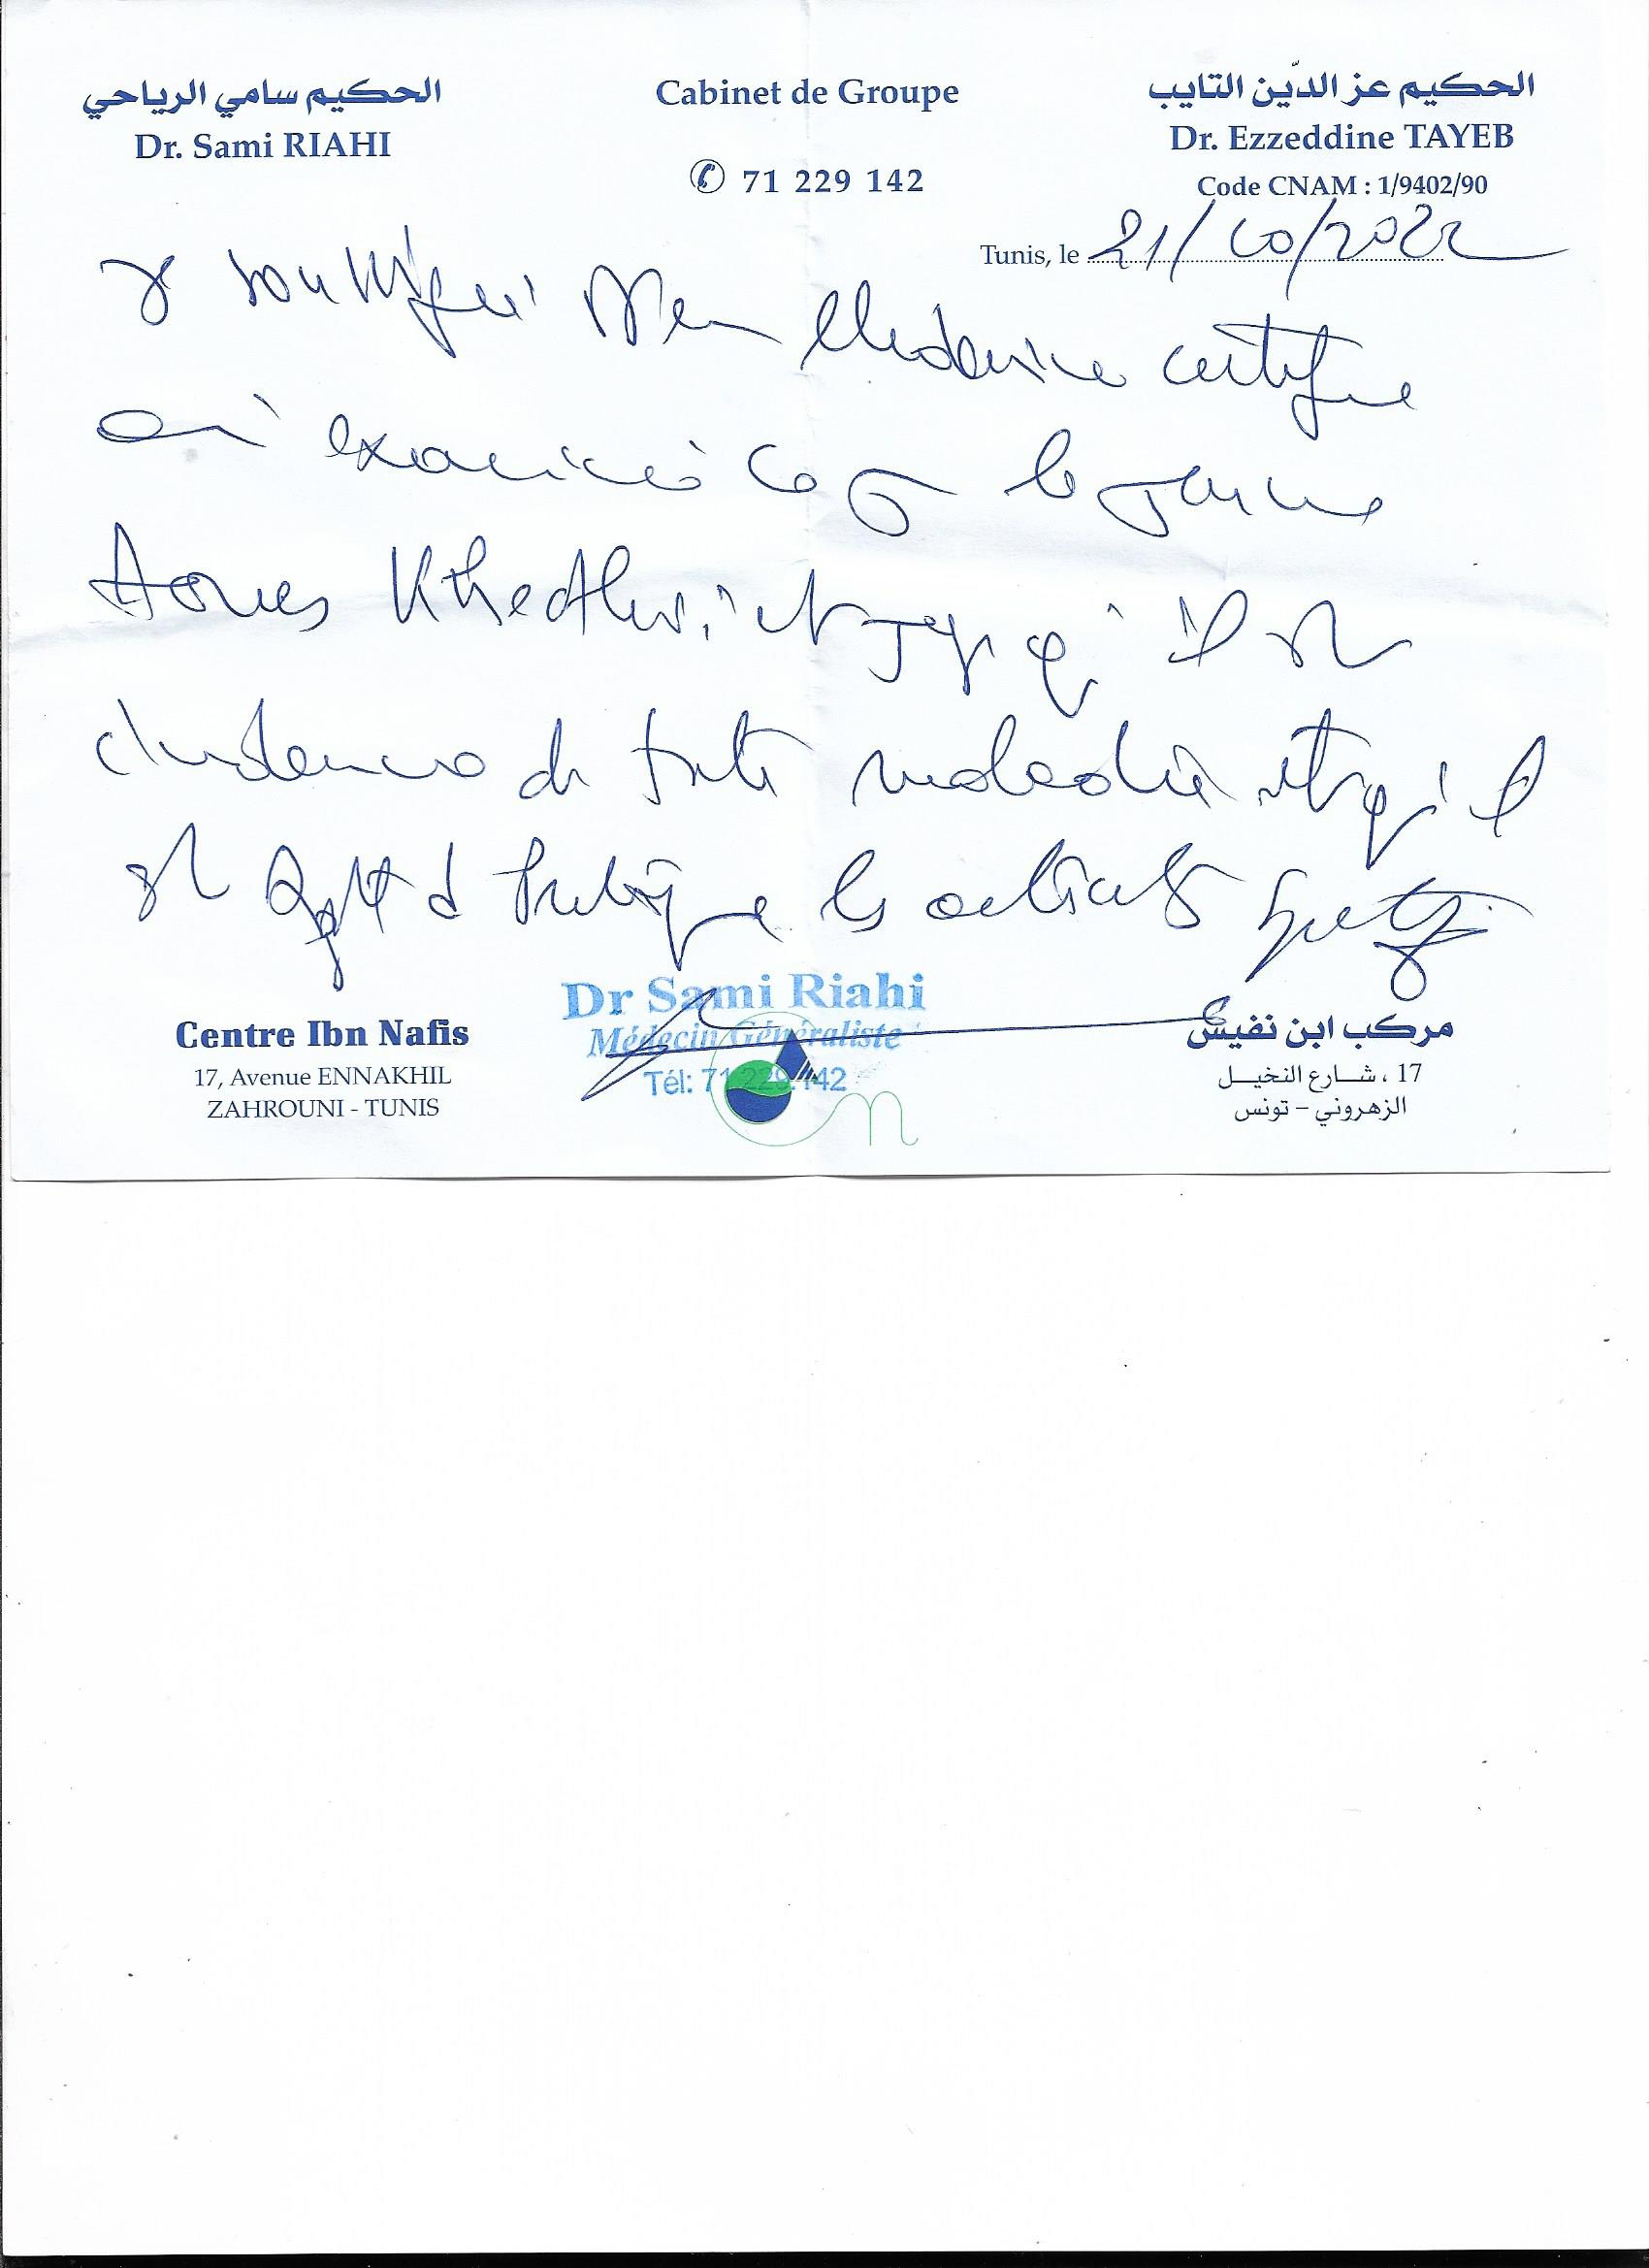 الحكيم سامي الرياحي
Dr. Sami RIAHI
Cabinet de Groupe
71 229 142
الحكيم عز الدّين التايب
Dr. Ezzeddine TAYEB
Code CNAM : 1/9402/90
Tunis, le 21/10/2022
Je soussigné certifie
examiné ce le jeune
Khedhiri et qu'il est
de toute maladie et qu'il
est apte à pratiquer les activités
Dr Sami Riahi
Médecin Généraliste
Tél: 71 229 142
Centre Ibn Nafis
17, Avenue ENNAKHIL
ZAHROUNI - TUNIS
مركب ابن نفيس
17 ، شارع النخيل
الزهروني - تونس